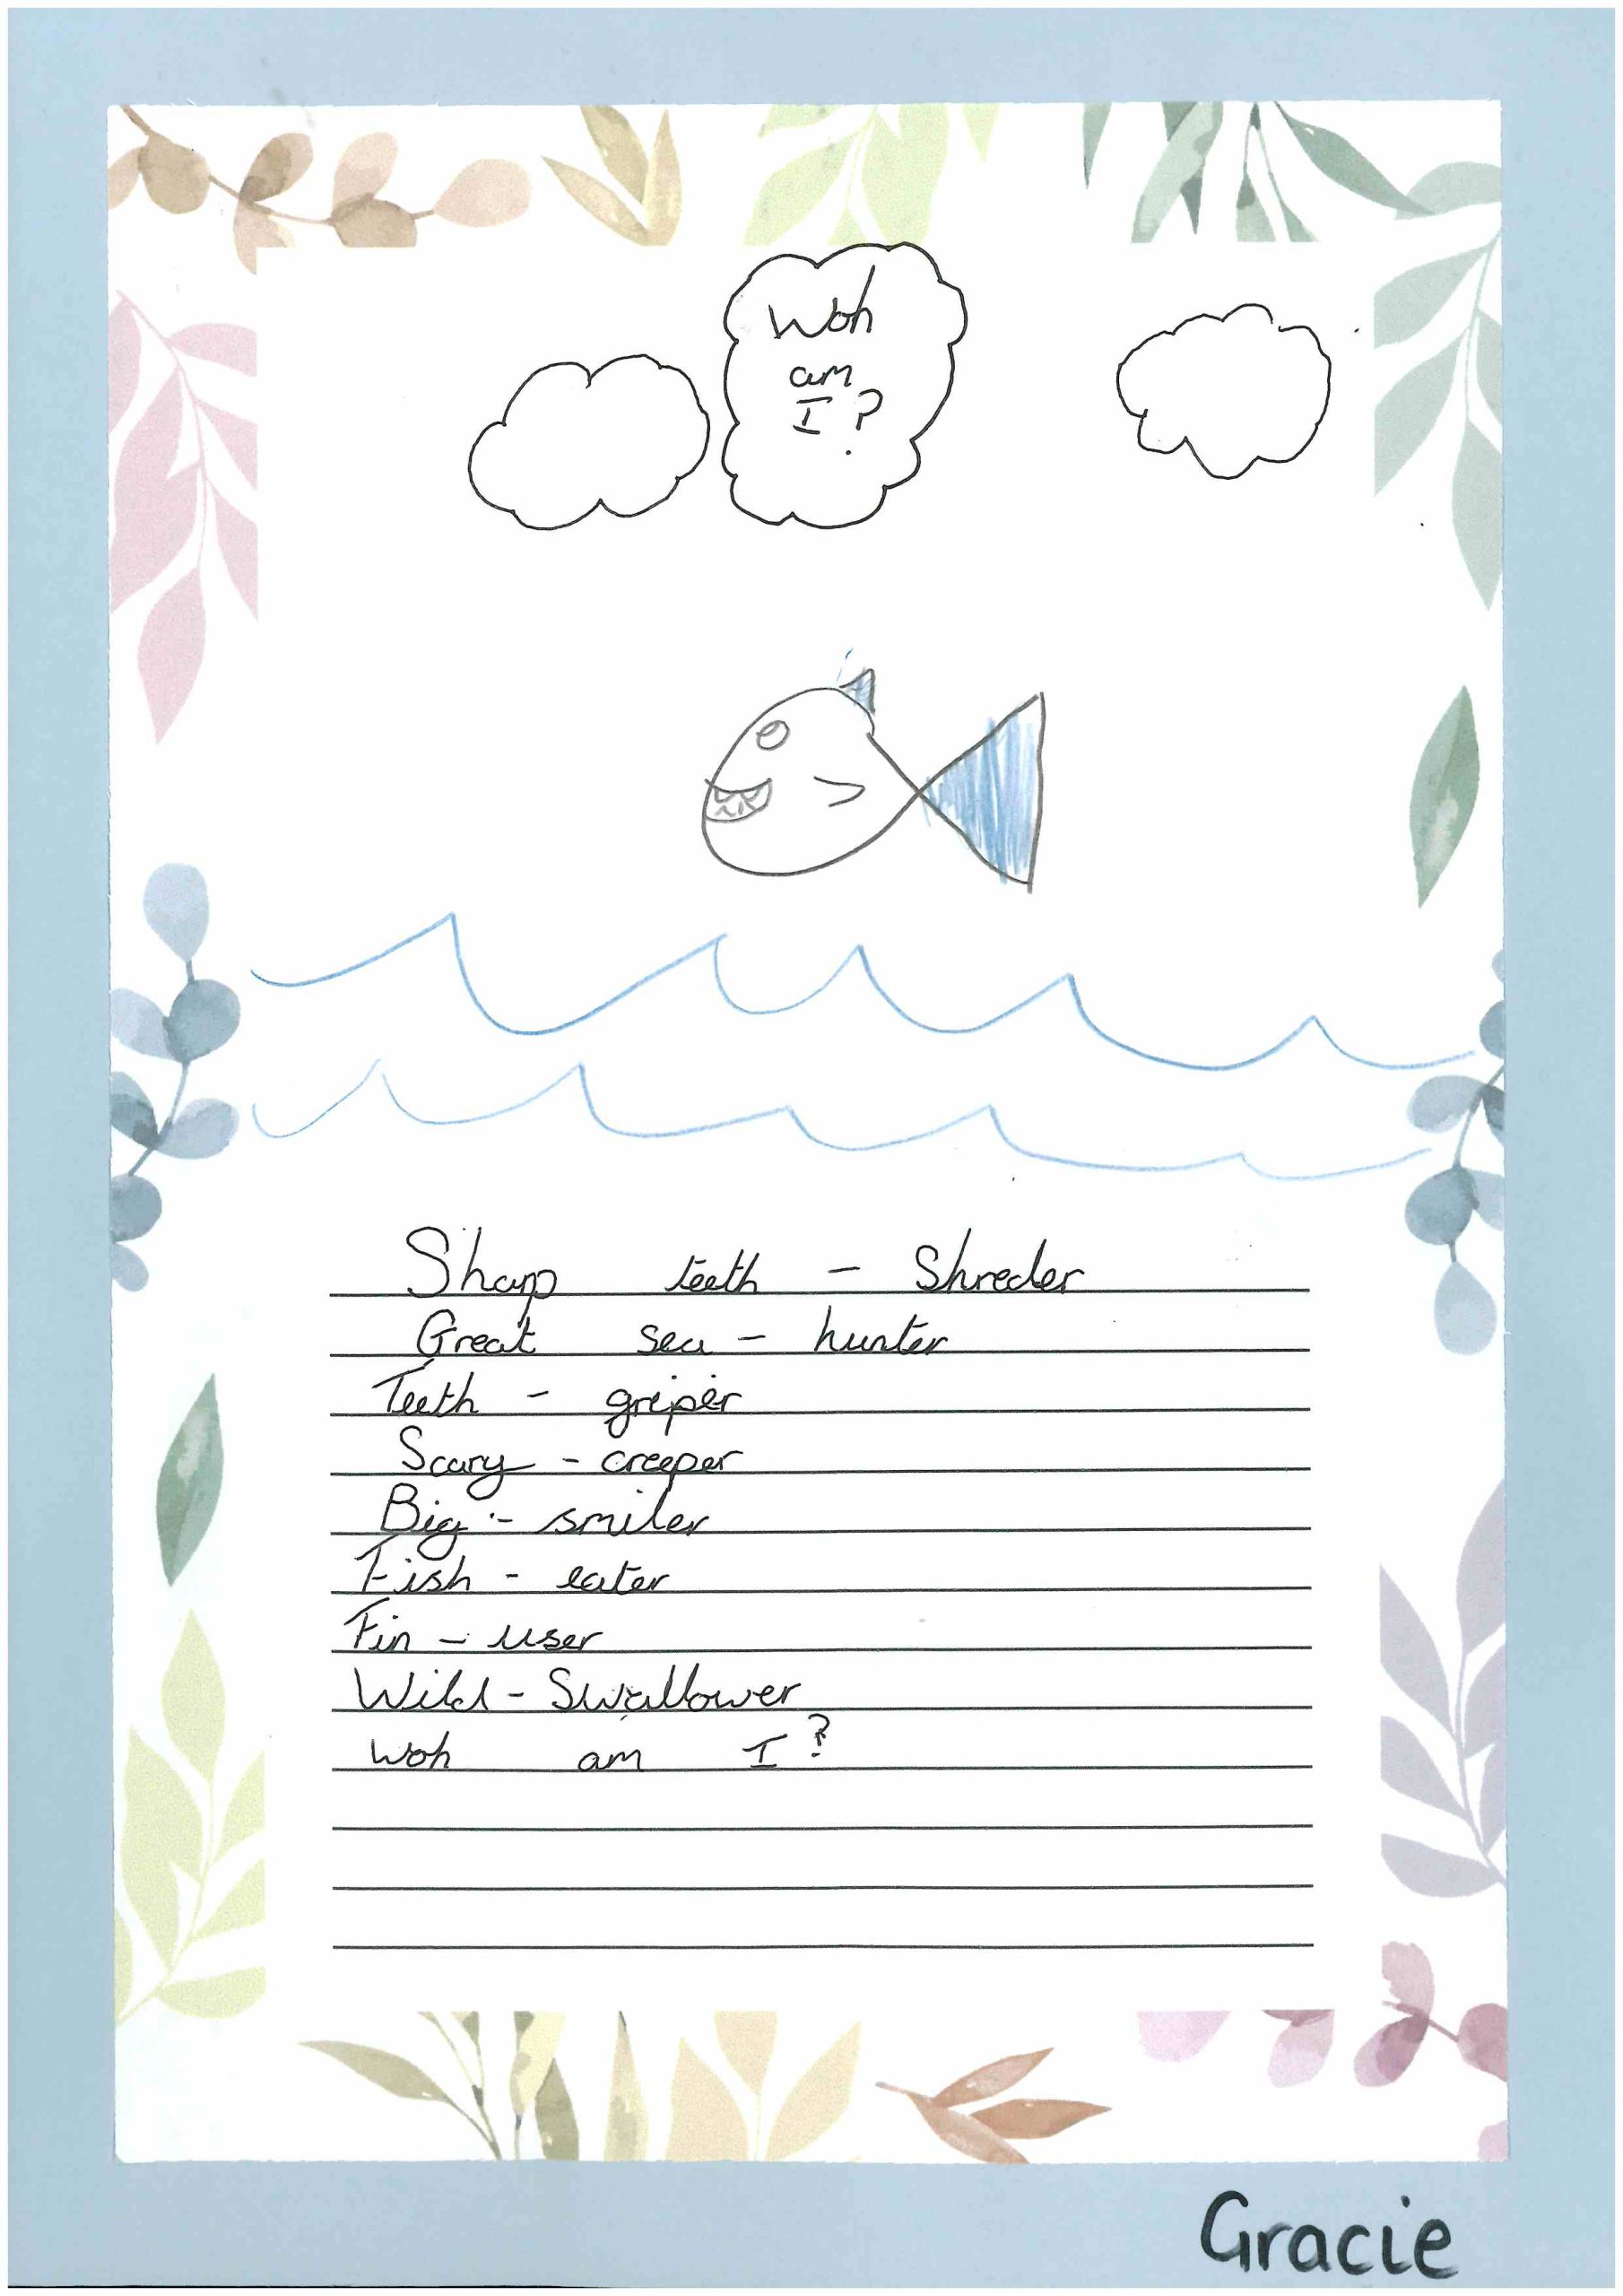 Woh
am
I?
Sharp teeth - Shreder
Great sea - hunter
Teeth - griper
Scary - creeper
Big - smiler
Fish - eater
Fin - user
Wild - Swallower
Woh am I?
Gracie